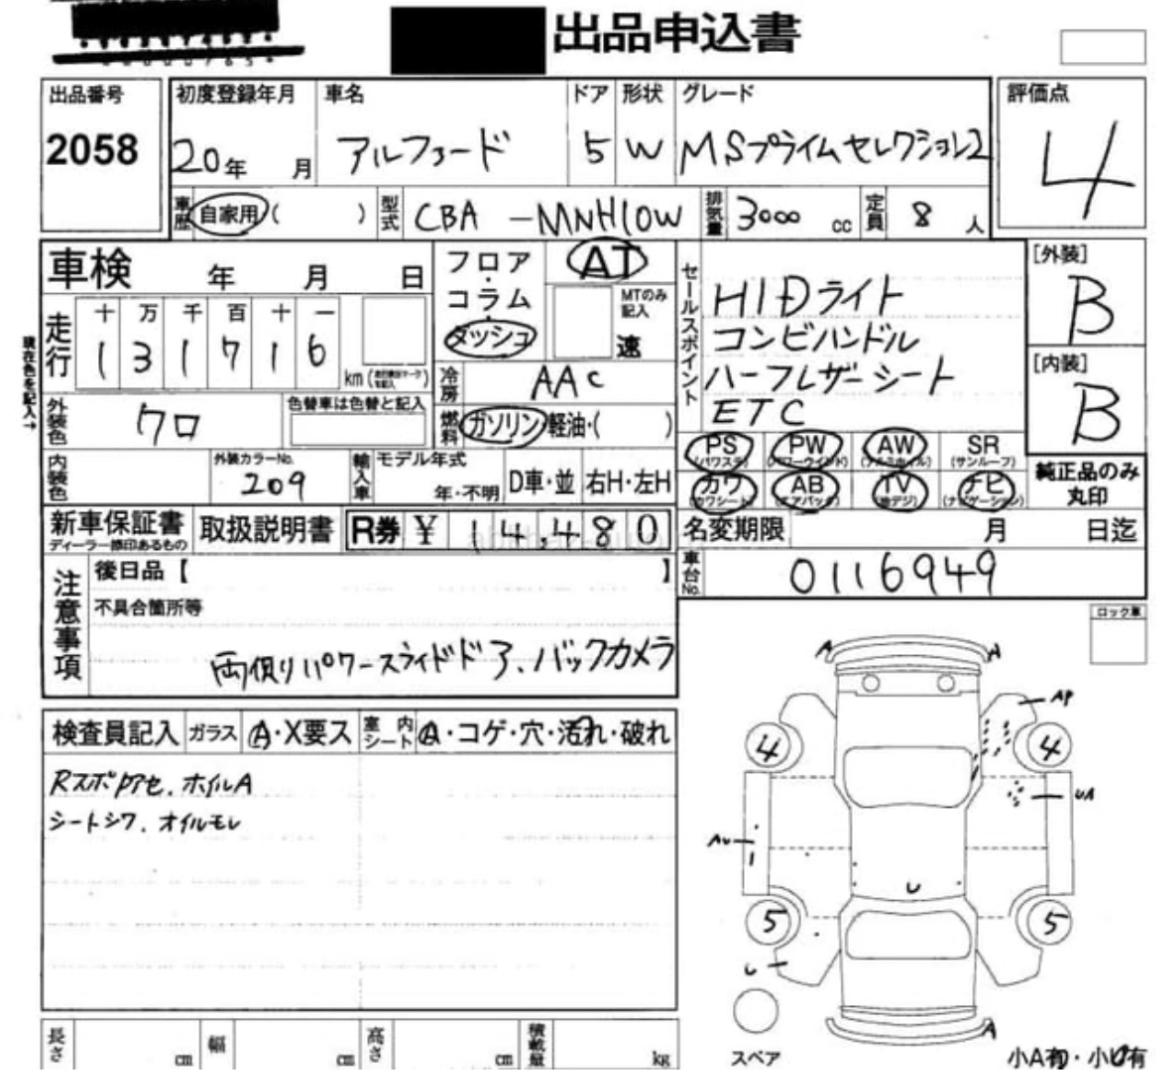 出品申込書
出品番号
2058
初度登録年月 車名 ドア 形状 グレード
20年 月 アルファード 5 W MSプライムセレクション2
評価点
4
車歴 自家用 ( ) 型式 CBA-MNH10W 排気量 3000 cc 定員 8 人
車検 年 月 日
走行 十 万 千 百 十 一
1 3 1 7 1 6 km
現在色を記入↑
外装色 クロ 色替車は色替と記入
内装色 外装カラーNo. 209
輸入車 モデル年式 年・不明 D車・並 右H・左H
フロア・コラム・ダッシュ
AT
MTのみ記入
速
冷房 AAC
燃料 ガソリン・軽油・( )
セールスポイント
HIDライト
コンビハンドル
ハーフレザーシート
ETC
[外装]
B
[内装]
B
PS (パワステ) PW (パワーウインド) AW (アルミホイル) SR (サンルーフ)
カワ (カワシート) AB (エアバック) TV (地デジ) ナビ (ナビゲーション)
純正品のみ丸印
新車保証書 ディーラー捺印あるもの 取扱説明書 R券 ¥ 14,480
名変期限 月 日迄
車台No. 0116949
注意事項
後日品【 】
不具合箇所等
両側パワースライドドア、バックカメラ
ロック車
検査員記入 ガラス A・X要ス 室内シート A・コゲ・穴・汚れ・破れ
ホイルA
シートシワ、オイルモレ
A A
AP
4 4
UA
AU
U
5 5
U
A
スペア
小A有・小U有
長さ cm 幅 cm 高さ cm 積載量 kg